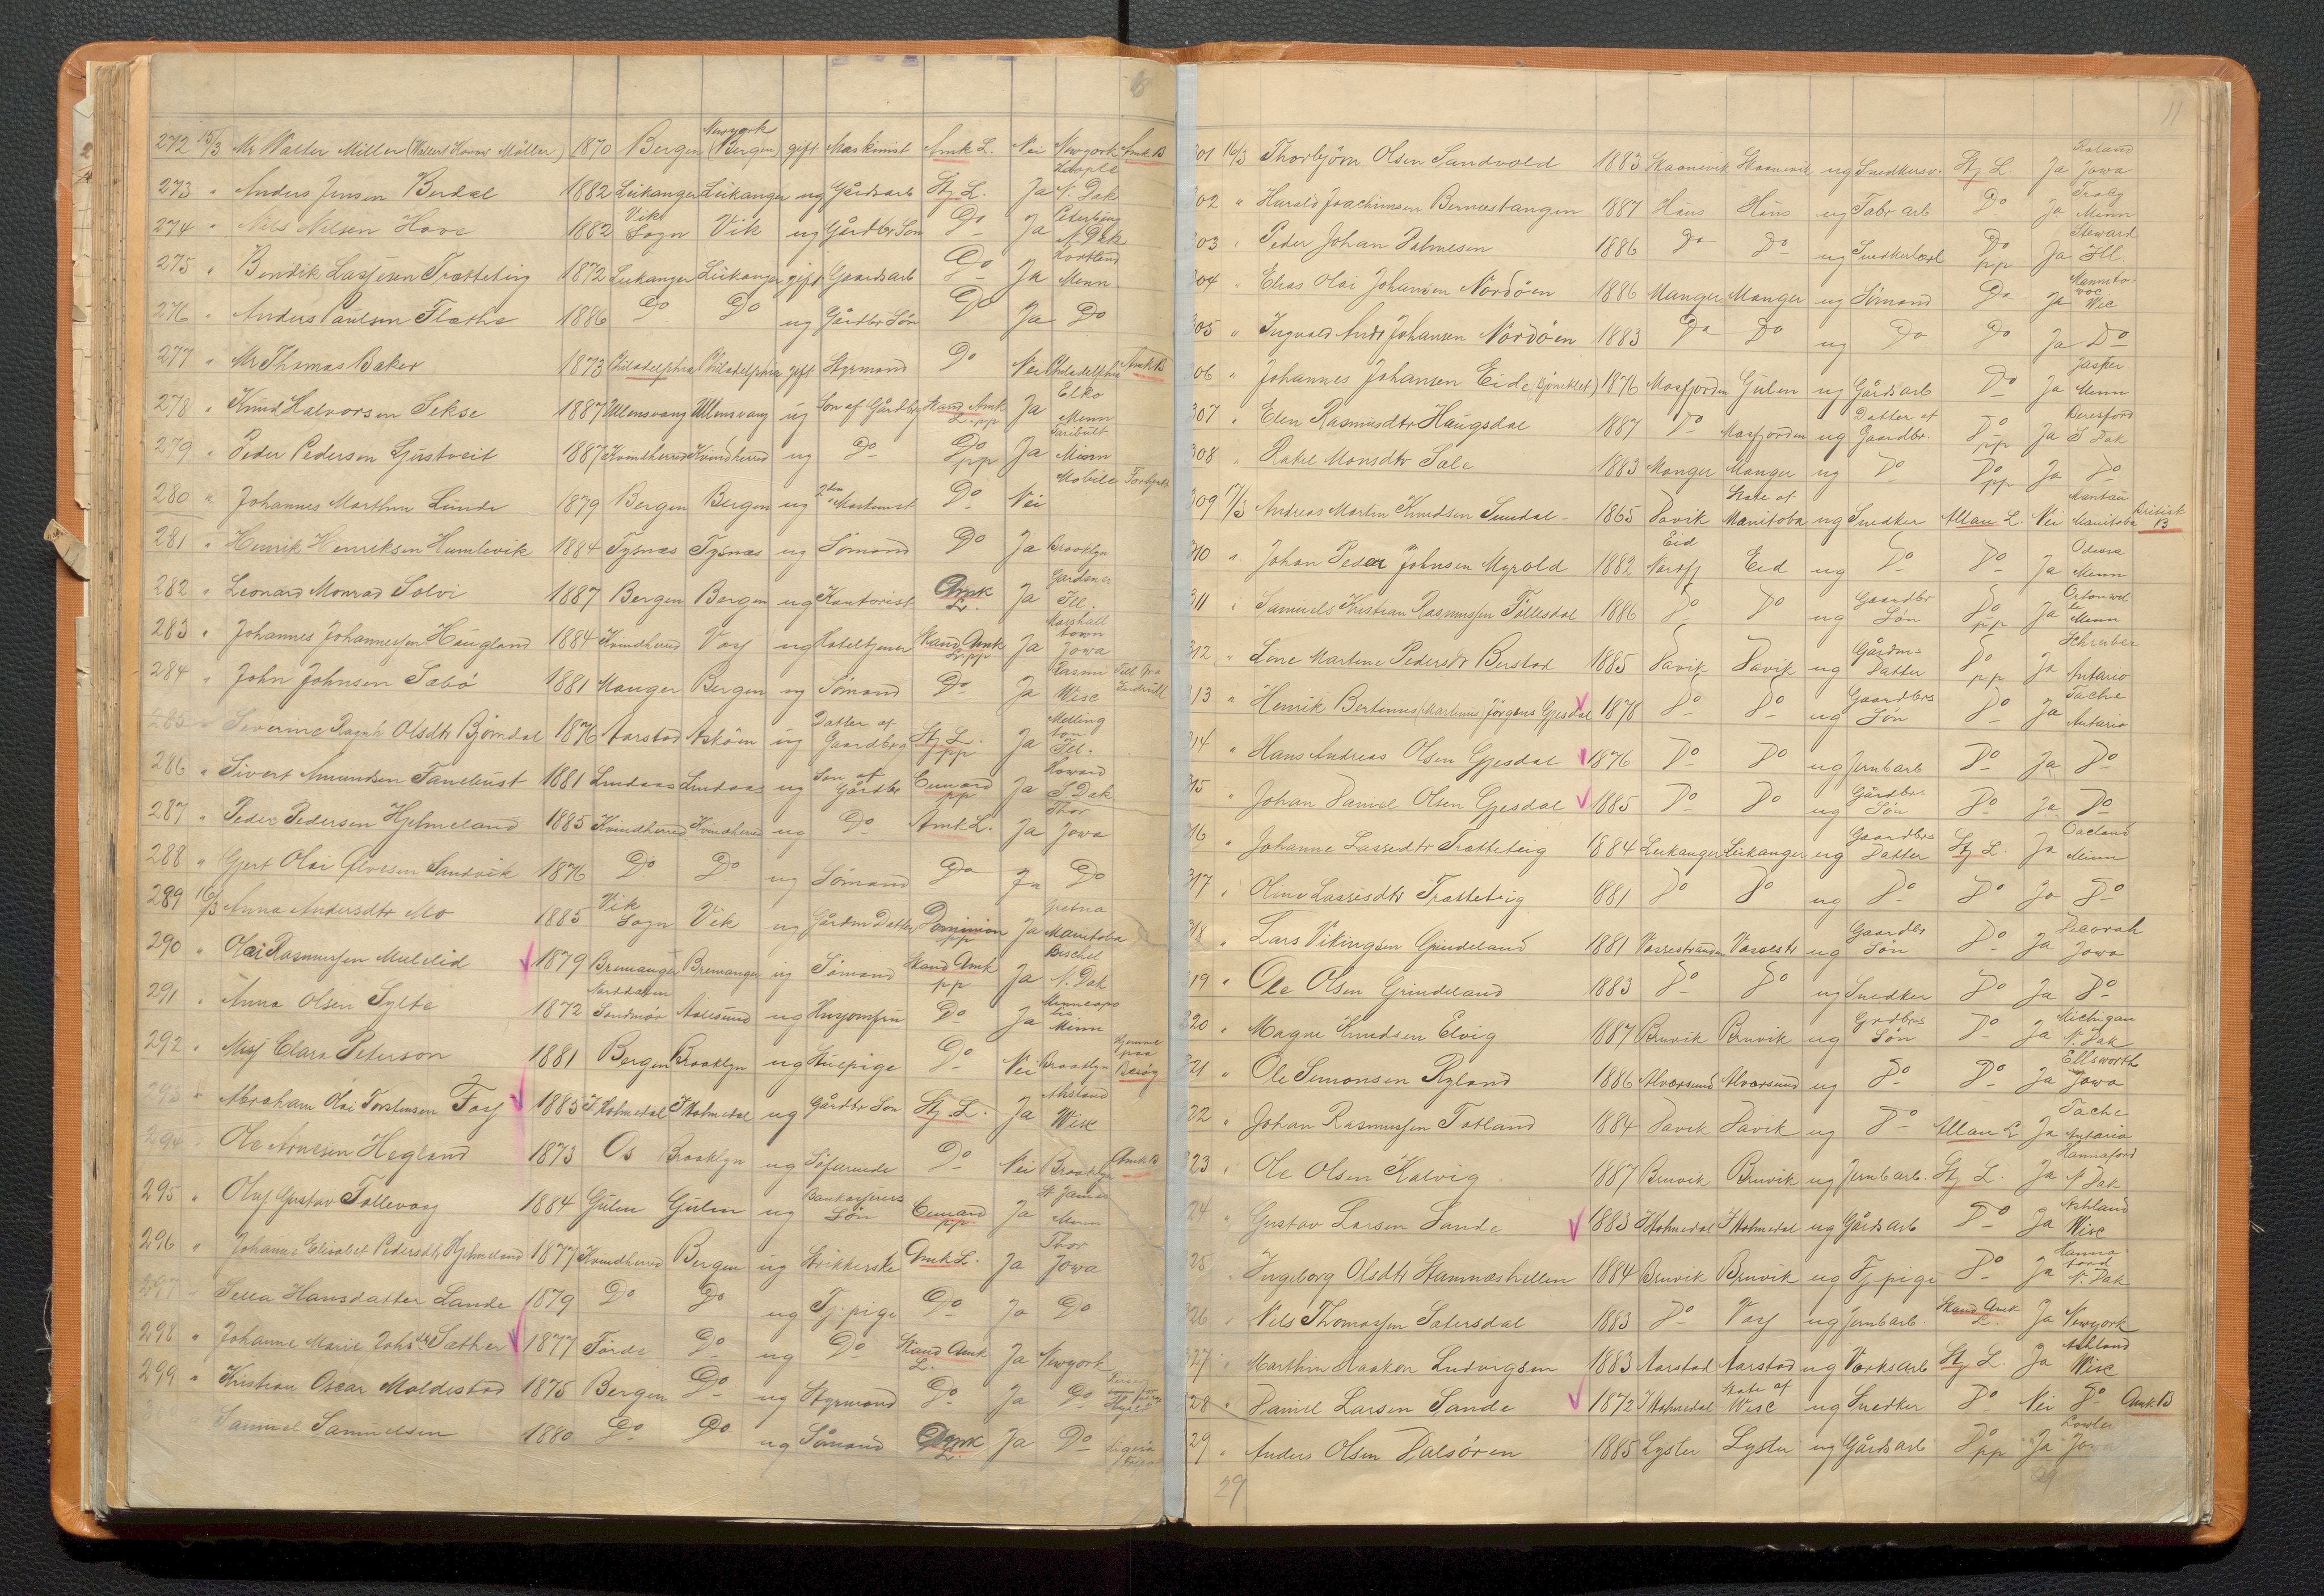 272 15/3 Mr Walter Miller (Walter Konow Möller) 1870 Bergen Newyork (Bergen) gift Maskinist Amk L. Nei Newyork Amk B
273 " Anders Jensen Berdal 1882 Leikanger Leikanger ug Gårdsarb Stj L. Ja N. Dak
274 " Nils Nilsen Hove 1882 Vik Sogn Vik ug Gårdbr Søn Do Ja N. Dak
275 " Bendik Lassesen Trætteteig 1872 Leikanger Leikanger gift Gaardsarb Do Ja Minn
276 " Anders Paulsen Flathe 1886 Do Do ug Gårdbr Søn Do Ja Do
277 " Mr Thomas Baker 1873 Philadelphia Philadelphia gift Styrmand Do Nei Philadelphia Amk B
278 " Knud Halvorsen Sekse 1887 Ullensvang Ullensvang ug Søn af Gårdbr Skand Amk L. pp Ja Elko Minn
279 " Peder Pedersen Gustveit 1887 Kvindherred Kvindherred ug Do Do pp Ja Faribult Minn
280 " Johannes Marthin Lunde 1879 Bergen Bergen ug 2den Maskinist Do Nei Mobile
281 " Henrik Henriksen Humlevik 1884 Tysnæs Tysnæs ug Sömand Do Ja Brooklyn
282 " Leonard Monrad Solvi 1887 Bergen Bergen ug Kontorist Amk L. Ja Gardener Ill.
283 " Johannes Johannessen Haugland 1884 Kvindherred Voss ug Hoteltjener Skand Amk L. pp Ja Marshall town Jowa
284 " John Johnsen Sæbö 1881 Manger Bergen ug Sömand Do Ja Rasini Wisc
285 " Severine Ragnh Olsdtr Björndal 1876 Aarstad Askøen ug Datter af Gaardbrg Stj L. pp Ja Melling ton Ill.
286 " Sivert Amundsen Fanebust 1881 Lindaas Lindaas ug Søn af Gårdbr Cunard pp Ja Howard S Dak
287 " Peder Pedersen Hjelmeland 1885 Kvindherred Kvindherred ug Do Amk L. Ja Thor Jowa
288 " Gjert Olai Gloesen Sandvik 1876 Do Do ug Sömand Do Ja Do
289 16/3 Anna Andersdtr Mo 1885 Vik Sogn Vik ug Gårdm Datter Dominion pp Ja Gretna Manitoba
290 " Olai Rasmussen Mulelid 1879 Bremanger Bremanger ug Sömand Skand Amk pp Ja N. Dak
291 " Anna Olsen Sylte 1872 Norddalen Söndmör Aalesund ug Husjomfru Do Ja Minneapolis Minn
292 " Miss Clara Peterson 1881 Bergen Brooklyn ug Stuepige Do Nei Brooklyn Hjemme paa Besög
293 " Abraham Olai Torstensen Foss 1885 Y Holmedal Y Holmedal ug Gårdbr Søn Stj L. Ja Ashland Wisc
294 " Ole Arnesen Hegland 1873 Os Brooklyn ug Söfarende Do Nei Brooklyn Amk B
295 " Oluf Gustav Tollevaag 1884 Gulen Gulen ug Søn Cunard pp. Ja St James Minn
296 " Johanne Elisabet Pedersdtr Hjelmeland 1877 Kvindherred Bergen ug Strikkerske Amk L. Ja Thor Jowa
297 " Sella Hansdatter Lande 1879 Do Do ug Tj. pige Do Ja Do
298 " Johanne Marie Johsdtr Sæther 1877 Förde Do ug Do Skand Amk L. Ja Newyork
299 " Kristian Oscar Moldestad 1875 Bergen Do ug Styrmand Do Ja Do
Samuel Samuelsen 1880 Do Do ug Sömand Amk L. Ja Do
11
301 16/3 Thorbjørn Olsen Sandvold 1883 Skaanevik Skaanevik ug Snedkersv. Stj L Ja Jowa
02 " Harald Joachimsen Bernestangen 1887 Haus Haus ug Fabr arb. Do Ja Minn
03 " Peder Johan Halmesen 1886 Do Do ug Snedkerlærl Do pp Ja Steward Ill.
04 " Elias Olai Johansen Nordöen 1886 Manger Manger ug Sömand Do Ja Mannito woc Wis
05 " Ingvald Andr Johansen Nordöen 1883 Do Do ug Do Do Ja Do
06 " Johannes Johansen Eide 1876 Masfjorden Gulen ug Gårdsarb Do Ja Jasper Minn
307 " Elen Rasmusdtr Haugsdal 1887 Do Masfjorden ug Datter af Gaardbr. Do pp Ja Beresford S Dak
308 " Rakel Monsdtr Sale 1883 Manger Manger ug Do Do pp Ja Do
309 17/3 Andreas Martin Knudsen Sundal 1865 Davik State of Manitoba ug Snedker Allan L. Nei Manitoba British B
310 " Johan Peder Johnsen Myrold 1882 Eid Nordfj Eid ug Do Do Ja Odessa Minn
311 " Samuels Kristian Rasmussen Föllesdal 1886 Do Do ug Gaardbr Søn Do pp Ja Minn
312 " Lene Martine Pedersdtr Berstad 1885 Davik Davik ug Gårdm Datter Do pp Ja Schruber Antario
313 " Henrik Bertinus (Martinus) Jörgens Gjesdal 1878 Do Do ug Gaardbrs Søn Do Ja Tache Antario
314 " Hans Andreas Olsen Gjesdal 1876 Do Do ug Jernbarb Do Ja Do
315 " Johan Daniel Olsen Gjesdal 1885 Do Do ug Gårdbrs Søn Do Ja Do
316 " Johanne Lassedtr Trætteteig 1884 Leikanger Leikanger ug Gaardbrs Datter Stj L. Ja Minn
317 " Oline Lassesdtr Trætteteig 1881 Do Do ug Do Do Ja Do
318 " Lars Vikingsen Grindeland 1881 Vassestranden Vassestr ug Gaardbr Søn Do Ja Decorah Jowa
319 " Ole Olsen Grindeland 1883 Do Do ug Snedker Do Ja Do
320 " Magne Knudsen Elvig 1887 Bruvik Bruvik ug Grdbrs Søn Do Ja Michigan N. Dak
321 " Ole Simonsen Ryland 1886 Alversund Alversund ug Do Do Ja Ellsworth Jowa
322 " Johan Rasmussen Totland 1884 Davik Davik ug Do Allan L Ja Tache Antario
323 " Ole Olsen Kalvig 1887 Bruvik Bruvik ug Jernbarb. Stj L. Ja Hannaford N Dak
24 " Gustav Larsen Sande 1883 Y Holmedal Y Holmedal ug Gårdsarb Do Ja Ashland Wisc
25 " Ingeborg Olsdtr Stamneshellen 1884 Bruvik Bruvik ug Tj. pige Do Ja Hanna ford N. Dak
26 Nils Thomassen Sætersdal 1883 Do Voss ug Jernbarb. Skand Amk L. Ja Newyork
327 " Marthin Haakon Ludvigsen 1883 Aarstad Aarstad ug Værksarb Stj L. Ja Ashland Wisc
28 " Daniel Larsen Sande 1872 Y Holmedal State of Wisc ug Snedker Do Nei Do Amk B
29 " Anders Olsen Dalsøren 1885 Lyster Lyster ug Gårdsarb Do pp Ja Jowa
29